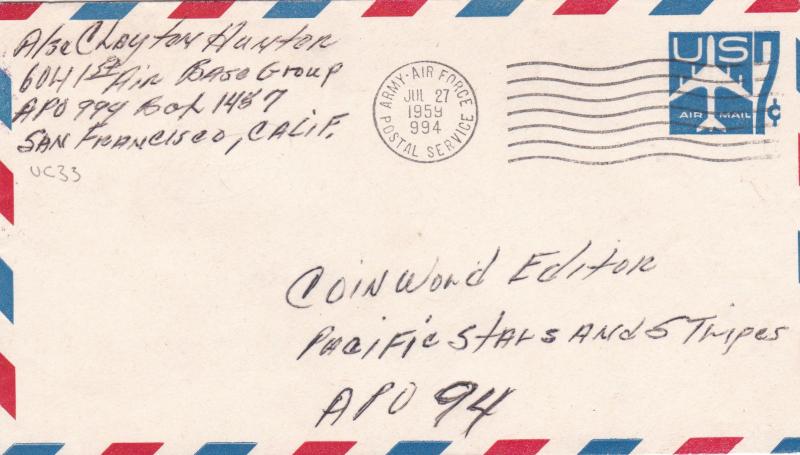 A/3c Clayton Hunter
6041st Air Base Group
APO 994 Box 1437
San Francisco, Calif.
UC33
ARMY-AIR FORCE
JUL 27
1959
994
POSTAL SERVICE
US 7¢
AIR MAIL
Coinword Editor
Pacific Stars and Stripes
APO 94